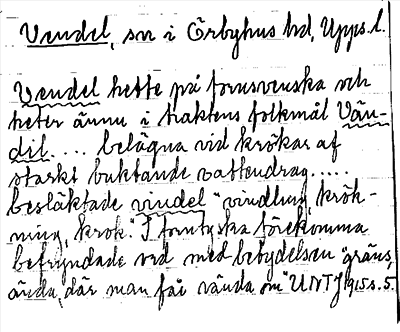 Vendel, sn i Örbyhus hd, Upps. l.
Vendel hette på fornsvenska och
heter ännu i traktens folkmål Vän-
dil.... belägna vid krökar af
starkt buktande vattendrag.....
besläktade vindel "vindling, krök-
ning, krok." I forntyska förekomma
befryndade ord med betydelsen "gräns,
ända, där man får vända om" UNT 1915 s. 5.